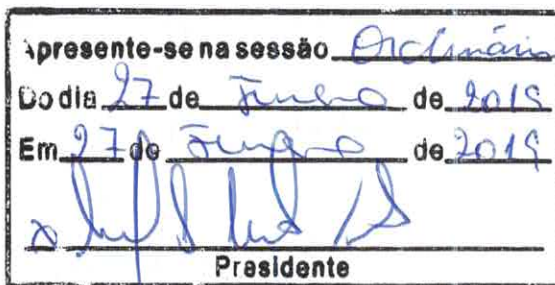 Apresente-se na sessão Ordinária
Do dia 27 de Junho de 2019
Em 27 de Junho de 2019
Presidente